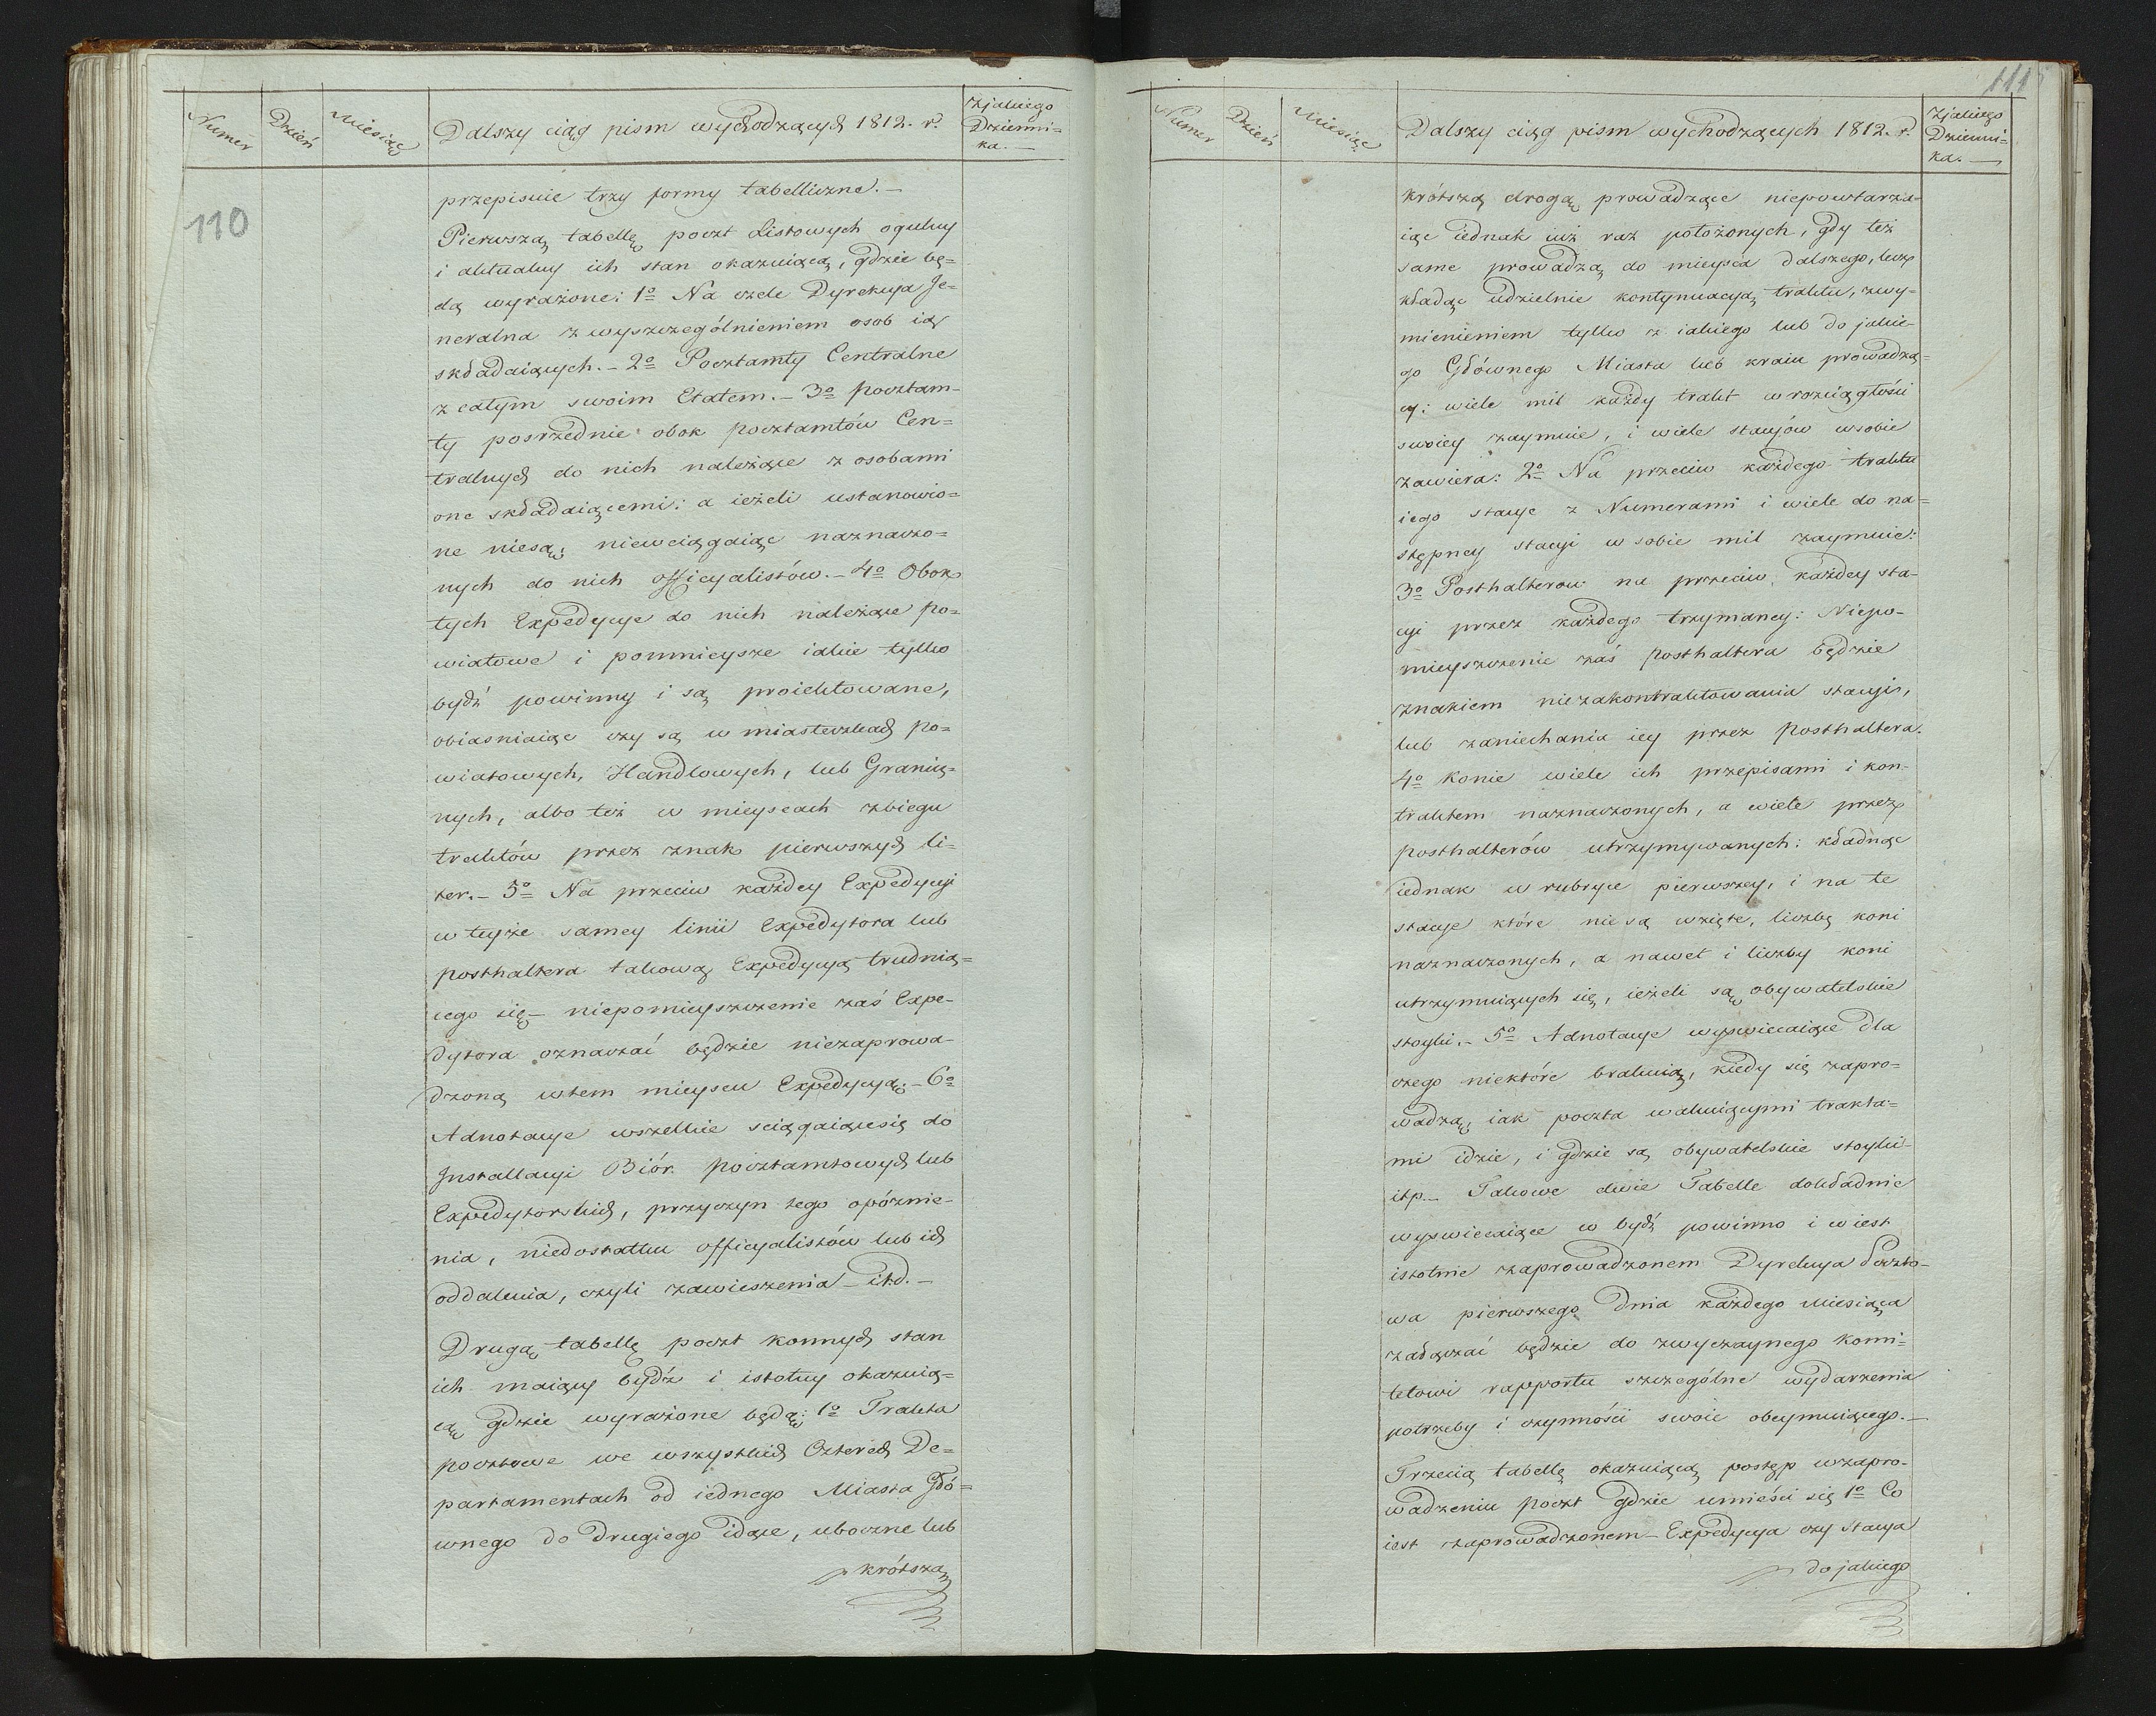 Numer Dzień Miesiąc Dalszy ciąg pism wychodzących 1812. r. Zjakiego
Dzienni=
ka. —
110
przepisuie trzy formy tabelliczne. —
Pierwszą tabellę poczt Listowych ogulny
i aktualny ich stan okazuiącą, gdzie bę=
dą wyrażone: 1º Na czele Dyrekcya Je=
neralna z wyszczególnieniem osob ią
składaiących. – 2º Pocztamty Centralne
z całym swoim Etatem. – 3º pocztam=
ty posrzednie obok pocztamtów Cen=
tralnych do nich należące z osobami
one składaiącemi: a ieżeli ustanowio=
ne niesą, niewciągaiąc naznaczo=
nych do nich officyalistów. – 4º Obok
tych Expedycye do nich należące po=
wiatowe i pomnieysze iakie tylko
bydź powinny i są proiektowane,
obiasniaiąc czy są w miasteczkach po=
wiatowych, Handlowych, lub Granicz=
nych, albo też w mieyscach zbiegu
traktów przez znak pierwszych li=
ter. – 5º Na przeciw każdey Expedycyi
w teyże samey linii Expedytora lub
posthaltera takową Expedycyą trudnią=
cego się – niepomieyszczenie zaś Expe=
dytora oznaczać będzie niezaprowa=
dzoną wtem mieyscu Expedycyą: – 6º
Adnotacye wszelkie sciągaiącesię do
Installacyi Biór pocztamtowych lub
Expedytorskich, przyczyn tego opóźnie=
nia, niedostatku officyalistów lub ich
oddalenia, czyli zawieszenia – itd. –
Drugą tabellę poczt konnych stan
ich maiący bydź i istotny okazuią=
cą gdzie wyrażone będą: 1º Trakta
pocztowe we wszystkich Czterech De=
partamentach od iednego Miasta Głó=
wnego do drugiego idące, uboczne lub
krótszą
111
Numer Dzień Miesiąc Dalszy ciąg pism wychodzących 1812. r. Zjakiego
Dzienni=
ka. —
krótszą drogą prowadzące niepowtarza=
iąc iednak iuż raz położonych, gdy też
same prowadzą do mieysca dalszego, lecz
kładąc udzielnie kontynuacyą traktu, zwy=
mienieniem tylko z iakiego lub do jakie=
go Głównego Miasta lub kraiu prowadzą=
cy: wiele mil każdy trakt w rozciągłości
swoiey zaymuie, i wiele stacyów wsobie
zawiera: 2º Na przeciw każdego traktu
iego stacye z Numerami i wiele do na=
stępney stacyi w sobie mil zaymuie:
3º Posthalterow na przeciw każdey sta=
cyi przez każdego trzymaney: Niepo=
mieyszczenie zaś posthaltera będzie
znakiem niezakontraktowania stacyi,
lub zaniechania iey przez posthaltera.
4º Konie wiele ich przepisami i kon=
traktem naznaczonych, a wiele przez
posthalterów utrzymywanych: kładnąc
iednak w rubryce pierwszey, i na te
stacye które nie są wzięte, liczbę koni
naznaczonych, a nawet i liczby koni
utrzymuiących się, ieżeli są obywatelskie
stoyki. – 5º Adnotacye wyswiecaiące dla
czego niektóre brakuią, kiedy się zapro=
wadzą, iak poczta wakuiącymi trakta=
mi idzie, i gdzie są obywatelskie stoyki
itp. – Takowe dwie Tabelle dokładnie
wyswiecaiące co bydź powinno i co iest
istotnie zaprowadzonem Dyrekcya Poczto=
wa pierwszego Dnia każdego Miesiąca
załączać będzie do zwyczaynego komi=
tetowi rapportu szczególne wydarzenia
potrzeby i czynności swoie obeymuiącego. –
Trzecią tabellę okazuiącą postęp wzapro=
wadzeniu poczt gdzie umieści się 1º Co
iest zaprowadzonem – Expedycya czy Stacya
do jakiego